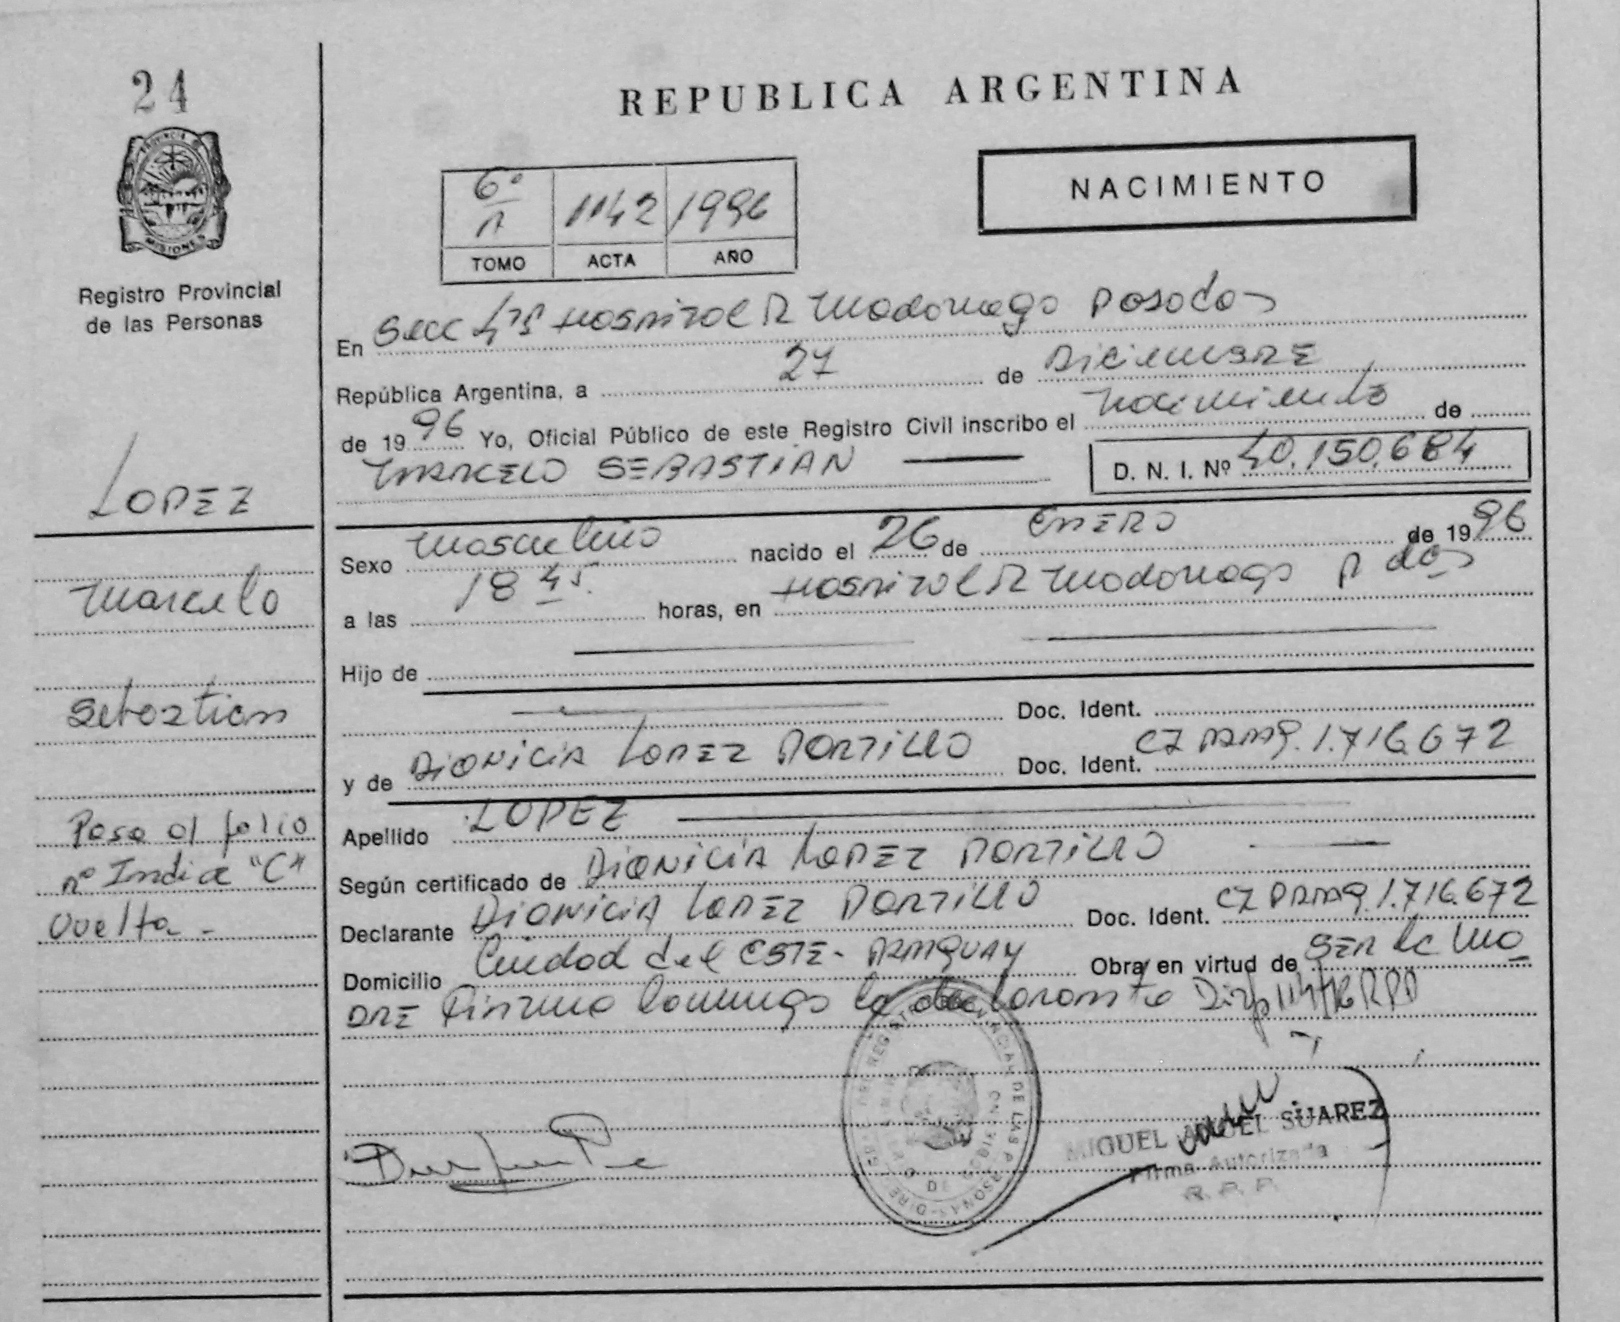 24
REPUBLICA ARGENTINA
PROVINCIA
MISIONES
Registro Provincial
de las Personas
NACIMIENTO
6º A 1142 1996
TOMO ACTA AÑO
En Secc 4ta Hospital R Madariaga Posadas
República Argentina, a 27 de Diciembre
de 1996 Yo, Oficial Público de este Registro Civil inscribo el nacimiento de
MARCELO SEBASTIAN
D. N. I. Nº 40.150.684
LOPEZ
Marcelo
Sebastian
Sexo masculino nacido el 26 de ENERO de 1996
a las 18 45. horas, en Hospital R Madariaga P das
Hijo de
Doc. Ident.
y de DIONICIA LOPEZ PORTILLO Doc. Ident. CZ PARAG. 1.716.672
Pasa al folio
nº Indice "C"
Vuelta -
Apellido LOPEZ
Según certificado de DIONICIA LOPEZ PORTILLO
Declarante DIONICIA LOPEZ PORTILLO Doc. Ident. CZ PARAG. 1.716.672
Domicilio Ciudad del ESTE - PARAGUAY Obra en virtud de SER la MA
DRE Firma conmigo la declarante
MIGUEL ANGEL SUAREZ
Firma Autorizada
R. P. P.